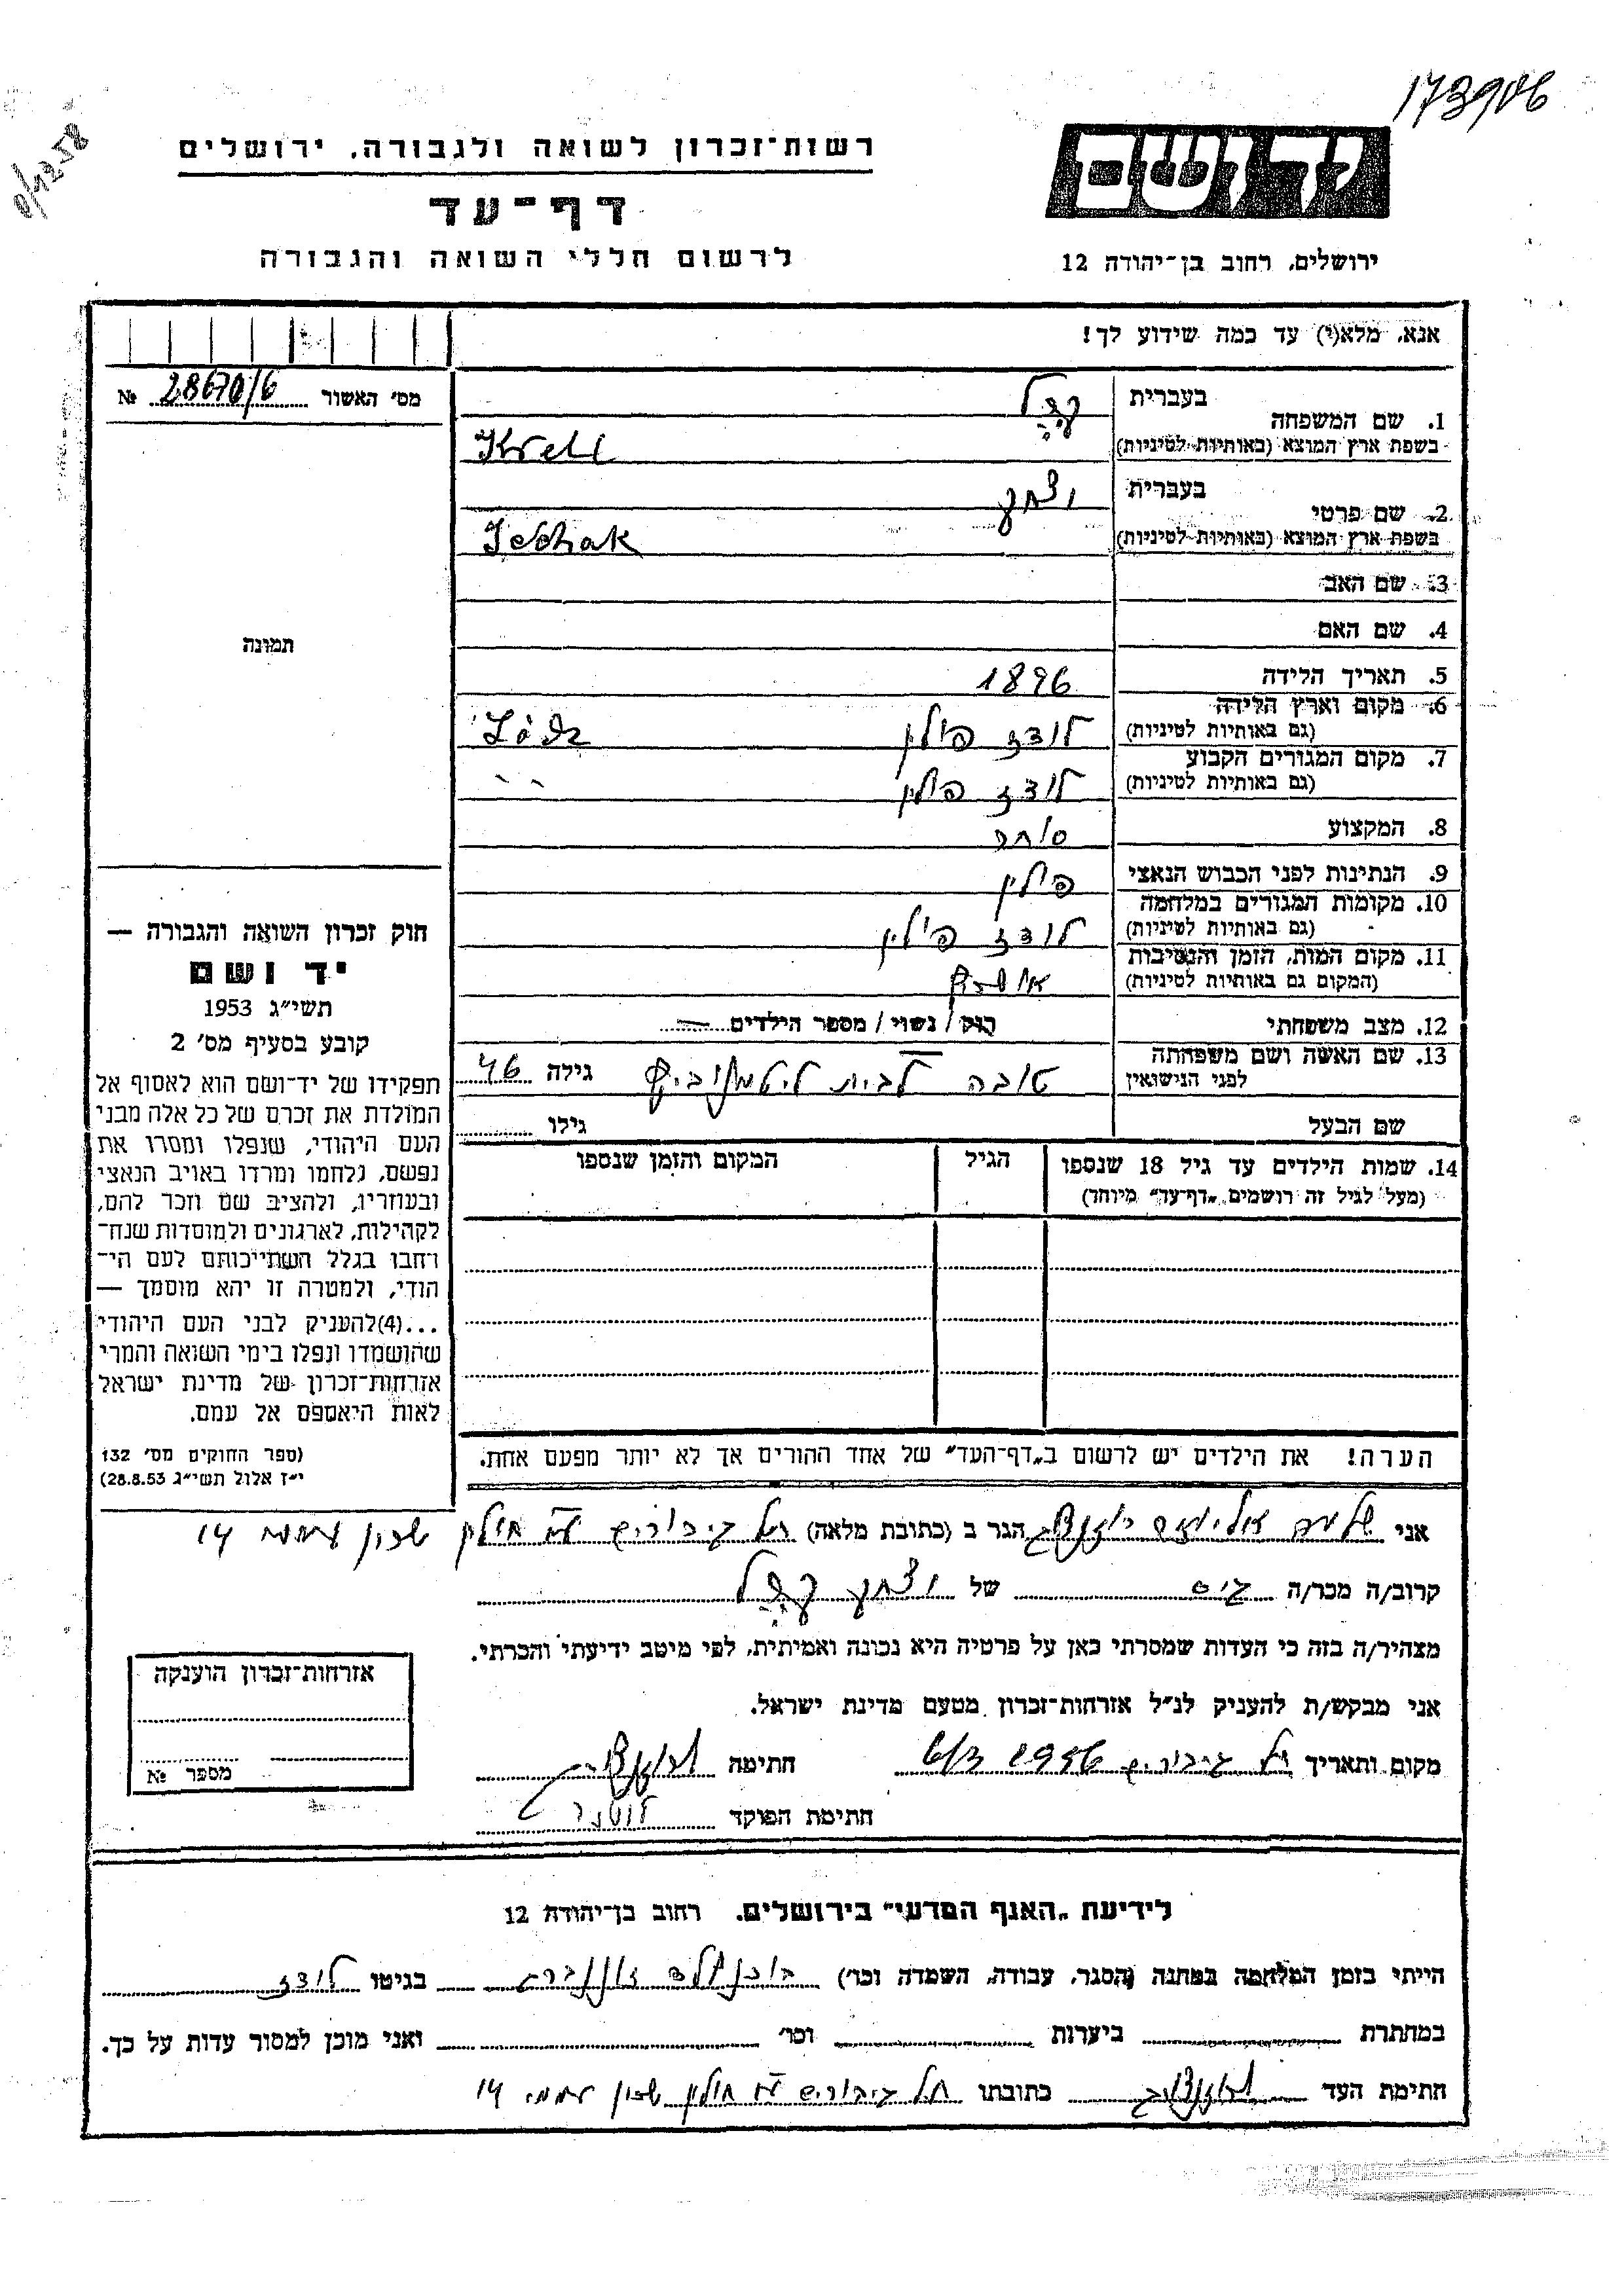 173906
0/1258
יד ושם
רשות־זכרון לשואה ולגבורה, ירושלים
דף־עד
לרשום חללי השואה והגבורה
ירושלים, רחוב בן־יהודה 12
אנא, מלא(י) עד כמה שידוע לך!
מס' האשור 28670/6 №
תמונה
1. שם המשפחה
בעברית קרל
בשפת ארץ המוצא (באותיות לטיניות) Krell
2. שם פרטי
בעברית יצחק
בשפת ארץ המוצא (באותיות לטיניות) Icchak
3. שם האב
4. שם האם
5. תאריך הלידה 1896
6. מקום וארץ הלידה
(גם באותיות לטיניות) לודז פולין Łódz
7. מקום המגורים הקבוע
(גם באותיות לטיניות) לודז פולין " "
8. המקצוע סוחר
9. הנתינות לפני הכבוש הנאצי פולין
10. מקומות המגורים במלחמה
(גם באותיות לטיניות) לודז פולין
11. מקום המות, הזמן והנסיבות
(המקום גם באותיות לטיניות)
12. מצב משפחתי רווק / נשוי / מספר הילדים —
13. שם האשה ושם משפחתה
לפני הנישואין טובה לבית גילה 46
שם הבעל גילו
14. שמות הילדים עד גיל 18 שנספו הגיל המקום והזמן שנספו
(מעל לגיל זה רושמים „דף־עד" מיוחד)
הערה! את הילדים יש לרשום ב„דף־העד" של אחד ההורים אך לא יותר מפעם אחת.
חוק זכרון השואה והגבורה —
יד ושם
תשי״ג 1953
קובע בסעיף מס' 2
תפקידו של יד־ושם הוא לאסוף אל
המולדת את זכרם של כל אלה מבני
העם היהודי, שנפלו ומסרו את
נפשם, נלחמו ומרדו באויב הנאצי
ובעוזריו, ולהציב שם וזכר להם,
לקהילות, לארגונים ולמוסדות שנח־
רחבו בגלל השתייכותם לעם הי־
הודי, ולמטרה זו יהא מוסמך —
...(4)להעניק לבני העם היהודי
שהושמדו ונפלו בימי השואה והמרי
אזרחות־זכרון של מדינת ישראל
לאות היאספם אל עמם.
(ספר החוקים מס' 132
י״ז אלול תשי״ג 28.8.53)
אני הגר ב (כתובת מלאה) תל גיבורים חולין שכון עממי 14
קרוב/ה מכר/ה גיס של יצחק קרל
מצהיר/ה בזה כי העדות שמסרתי כאן על פרטיה היא נכונה ואמיתית, לפי מיטב ידיעתי והכרתי.
אני מבקש/ת להעניק לנ״ל אזרחות־זכרון מטעם מדינת ישראל.
מקום ותאריך תל גיבורים 1956 6/3 חתימה
חתימת הפוקד
אזרחות־זכרון הוענקה
מספר №
לידיעת „האנף המדעי" בירושלים, רחוב בן־יהודה 12
הייתי בזמן המלחמה במחנה (הסגר, עבודה, השמדה וכו') בגיטו לודז
במחתרת ביערות וכו' ואני מוכן למסור עדות על כך.
חתימת העד כתובתו תל גיבורים חולין שכון עממי 14